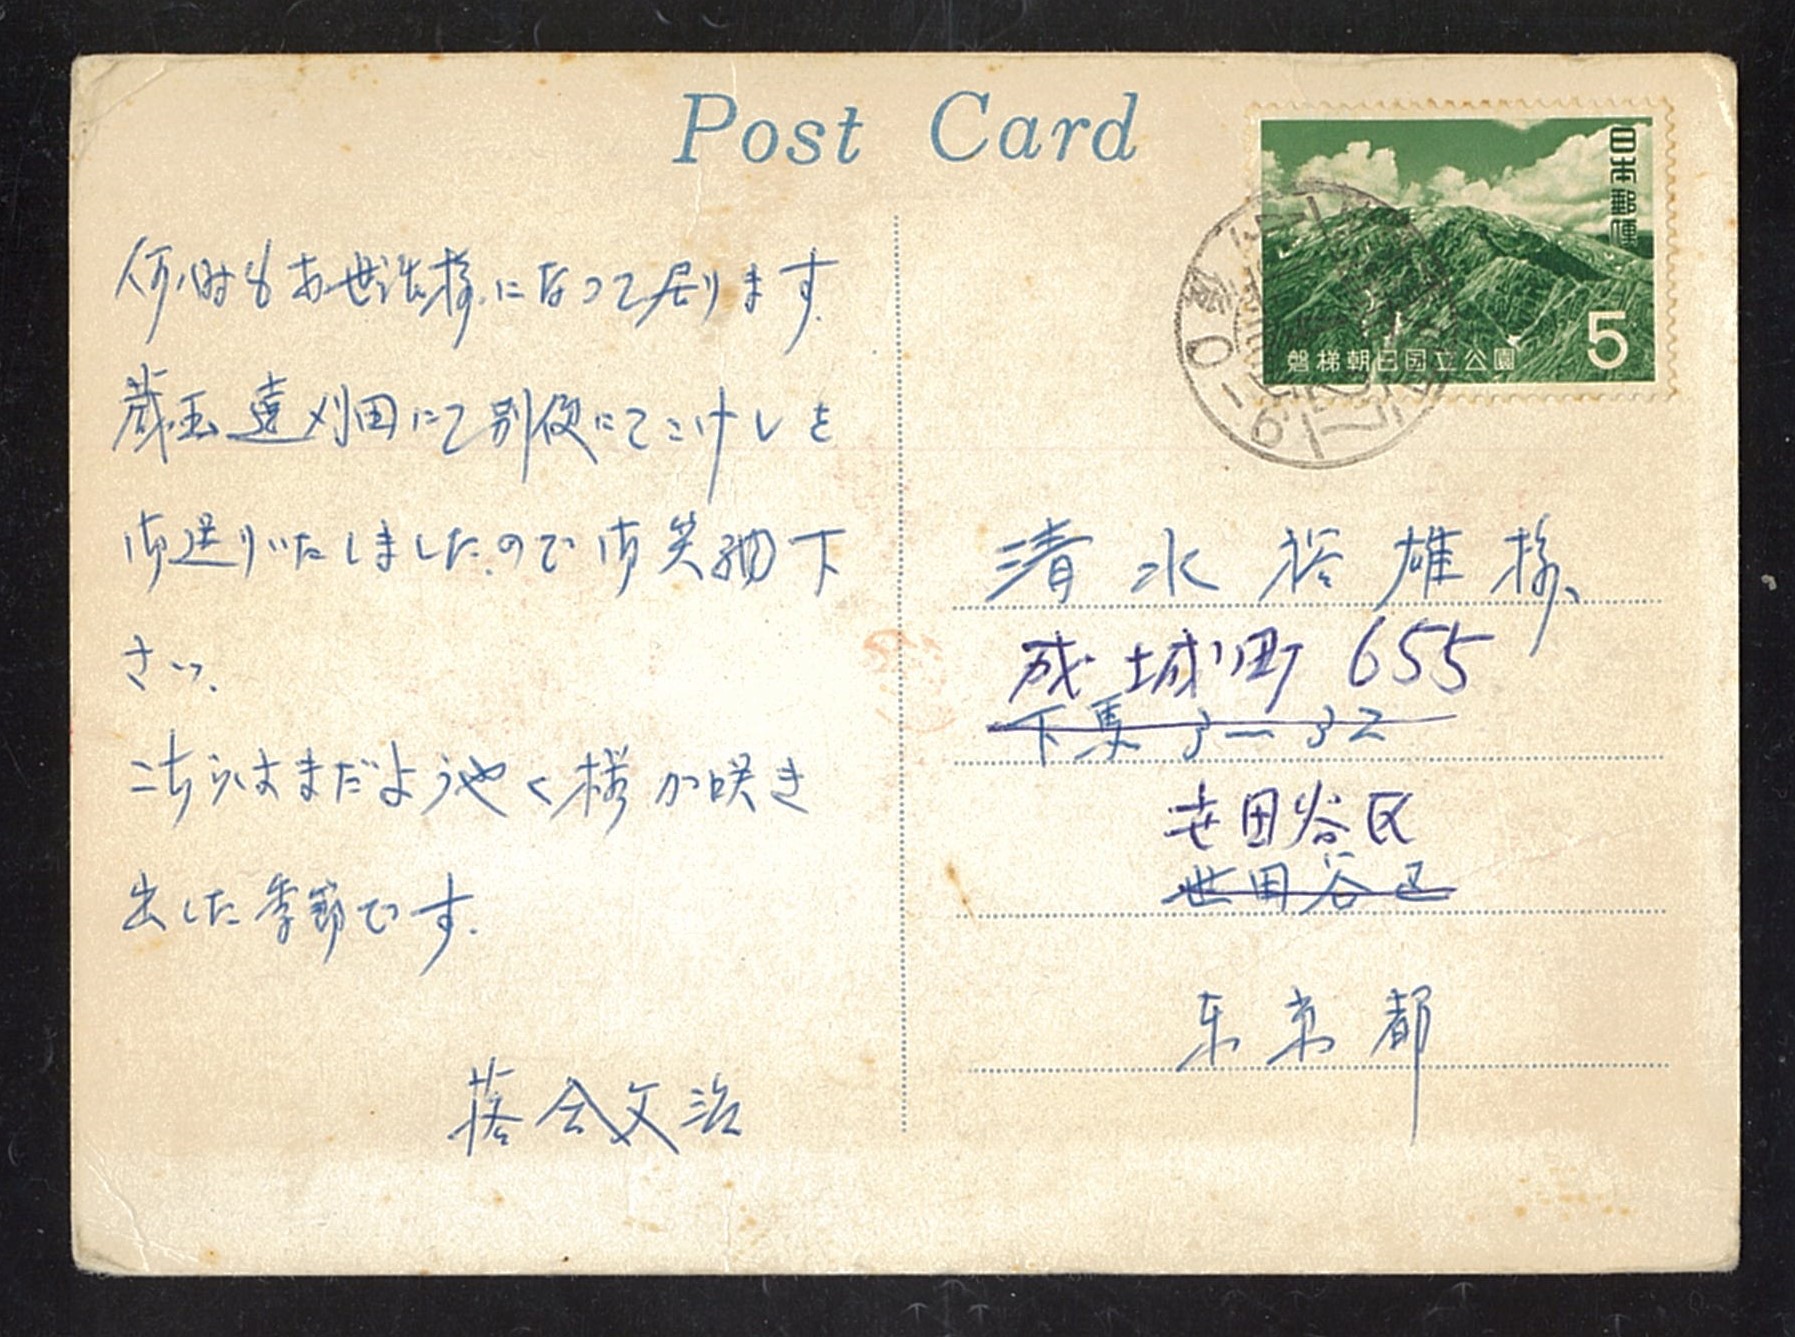 Post Card
日本郵便
磐梯朝日国立公園
5
何時もお世話様になって居ります.
蔵王遠刈田にて別便にてこけしを
御送りいたしましたので御笑納下
さい.
こちらはまだようやく桜が咲き
出した季節です.
落合文治
清水裕雄様
成城町 655
下馬 3-32
世田谷区
世田谷区
东京都